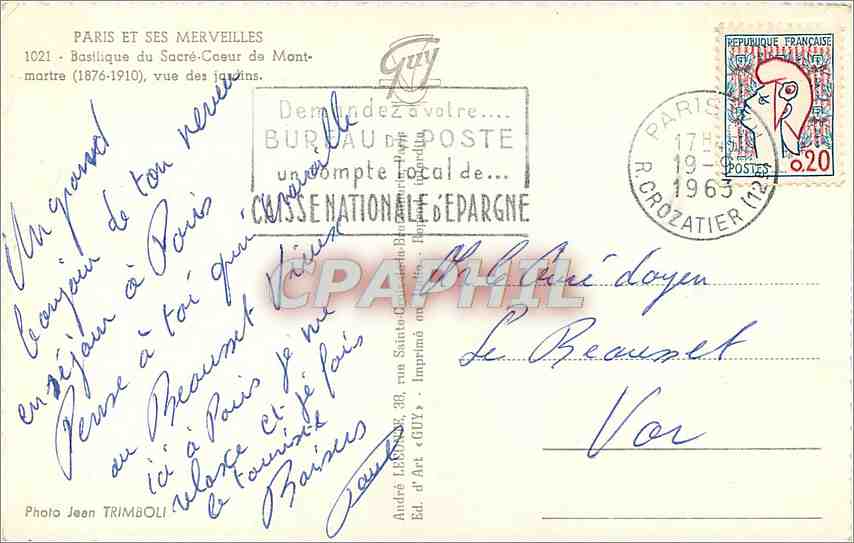 PARIS ET SES MERVEILLES
1021 - Basilique du Sacré-Cœur de Mont-
martre (1876-1910), vue des jardins.
Guy
Demandez à votre....
BUREAU DE POSTE
un compte local de...
CAISSE NATIONALE D'ÉPARGNE
REPUBLIQUE FRANÇAISE
POSTES
0.20
PARIS
17H
19-9
1963
R. CROZATIER (12E)
Un grand
bonjour de ton neveu
en séjour à Paris
Pense à toi qui travaille
au Beausset Vieux
ici à Paris je me
relaxe et je fais
le touriste
Baisers
Paul
Mr le Curé doyen
Le Beausset
Var
CPAPHIL
André LECONTE, 38, rue Sainte-Croix-de-la-Bretonnerie - Paris
Ed. d'Art «GUY» - Imprimé en - Reproduction interdite
Photo Jean TRIMBOLI